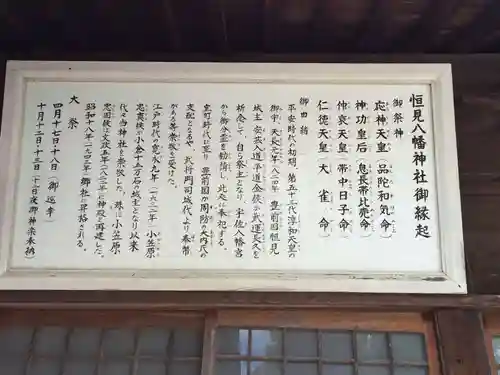 恒見八幡神社御縁起
御祭神
応神天皇（品陀和気命）
神功皇后（息長帯比売命）
仲哀天皇（帯中日子命）
仁徳天皇（大雀命）
御由緒
平安時代の初期、第五十三代淳和天皇の
御宇、天長元年（八二四年）豊前国恒見
城主安芸入道平道金候が武運長久を
祈念して、自ら祭主となり宇佐八幡宮
から御分霊を勧請し此処に奉祀する。
室町時代に至り豊前国が周防の大内氏の
支配となるや、武将門司の城代より奉幣
がある等崇敬を受けた。
江戸時代の寛永九年（一六三二年）小笠原
忠真候が小倉十五万石の城主となり以来
代々当神社を崇敬した。殊に小笠原
忠固候は文政五年（一八二二年）に神殿を再建した。
昭和十八年（一九四三年）郷社に昇格される。
大祭
四月十七日十八日（御巡幸）
十月十二日十三日（十三日夜御神楽奉納）